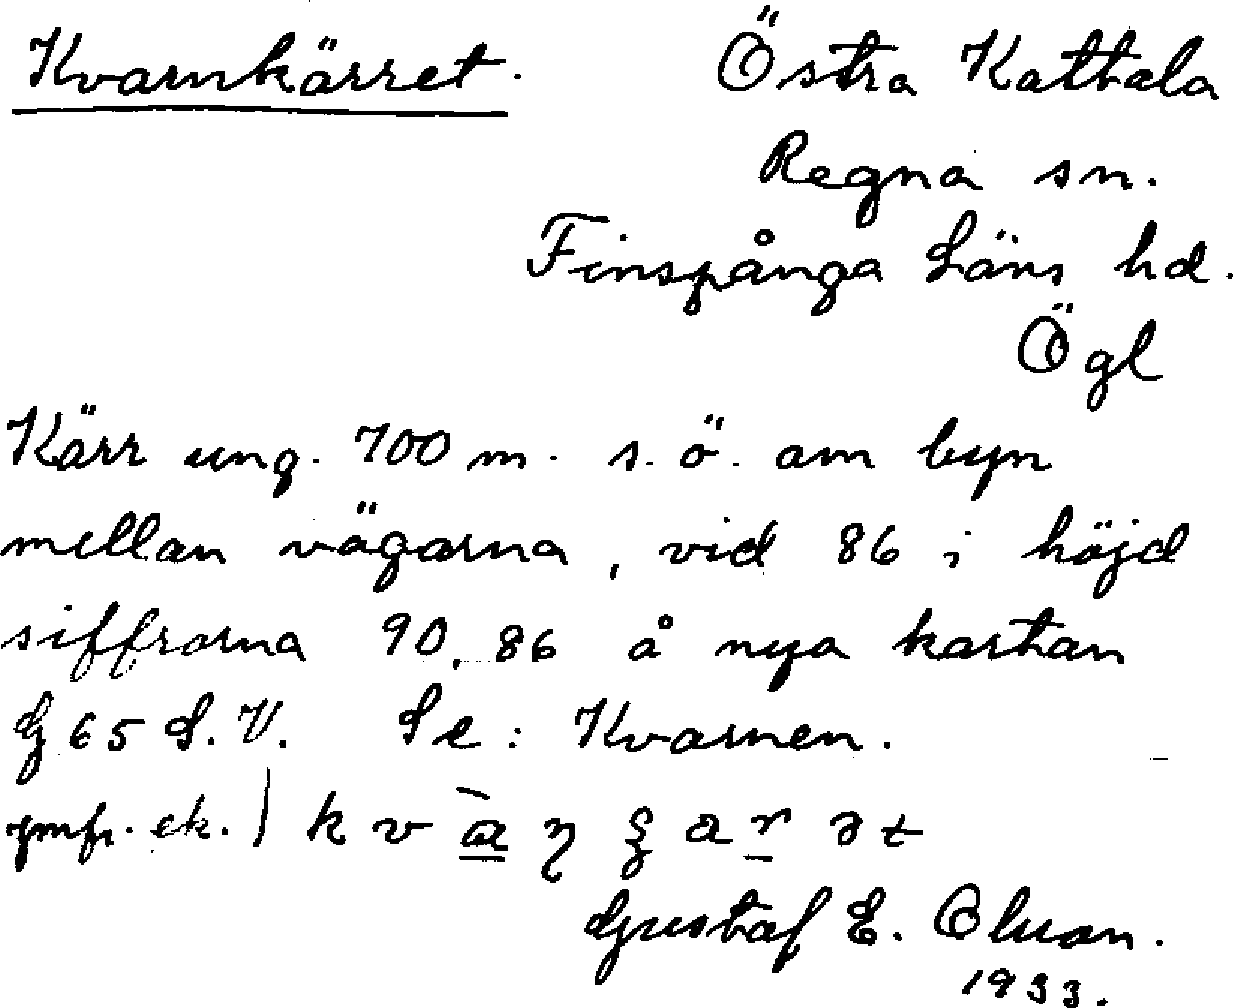 Kvarnkärret. Östra Kattala
Regna sn.
Finspånga Läns hd.
Ögl
Kärr ung. 700 m. s. ö. om byn
mellan vägarna, vid 86 i höjd
siffrorna 90, 86 å nya kartan
G 65 S. V. Se: Kvarnen.
jmfr. ek.) k v
Gustaf E.
1933.